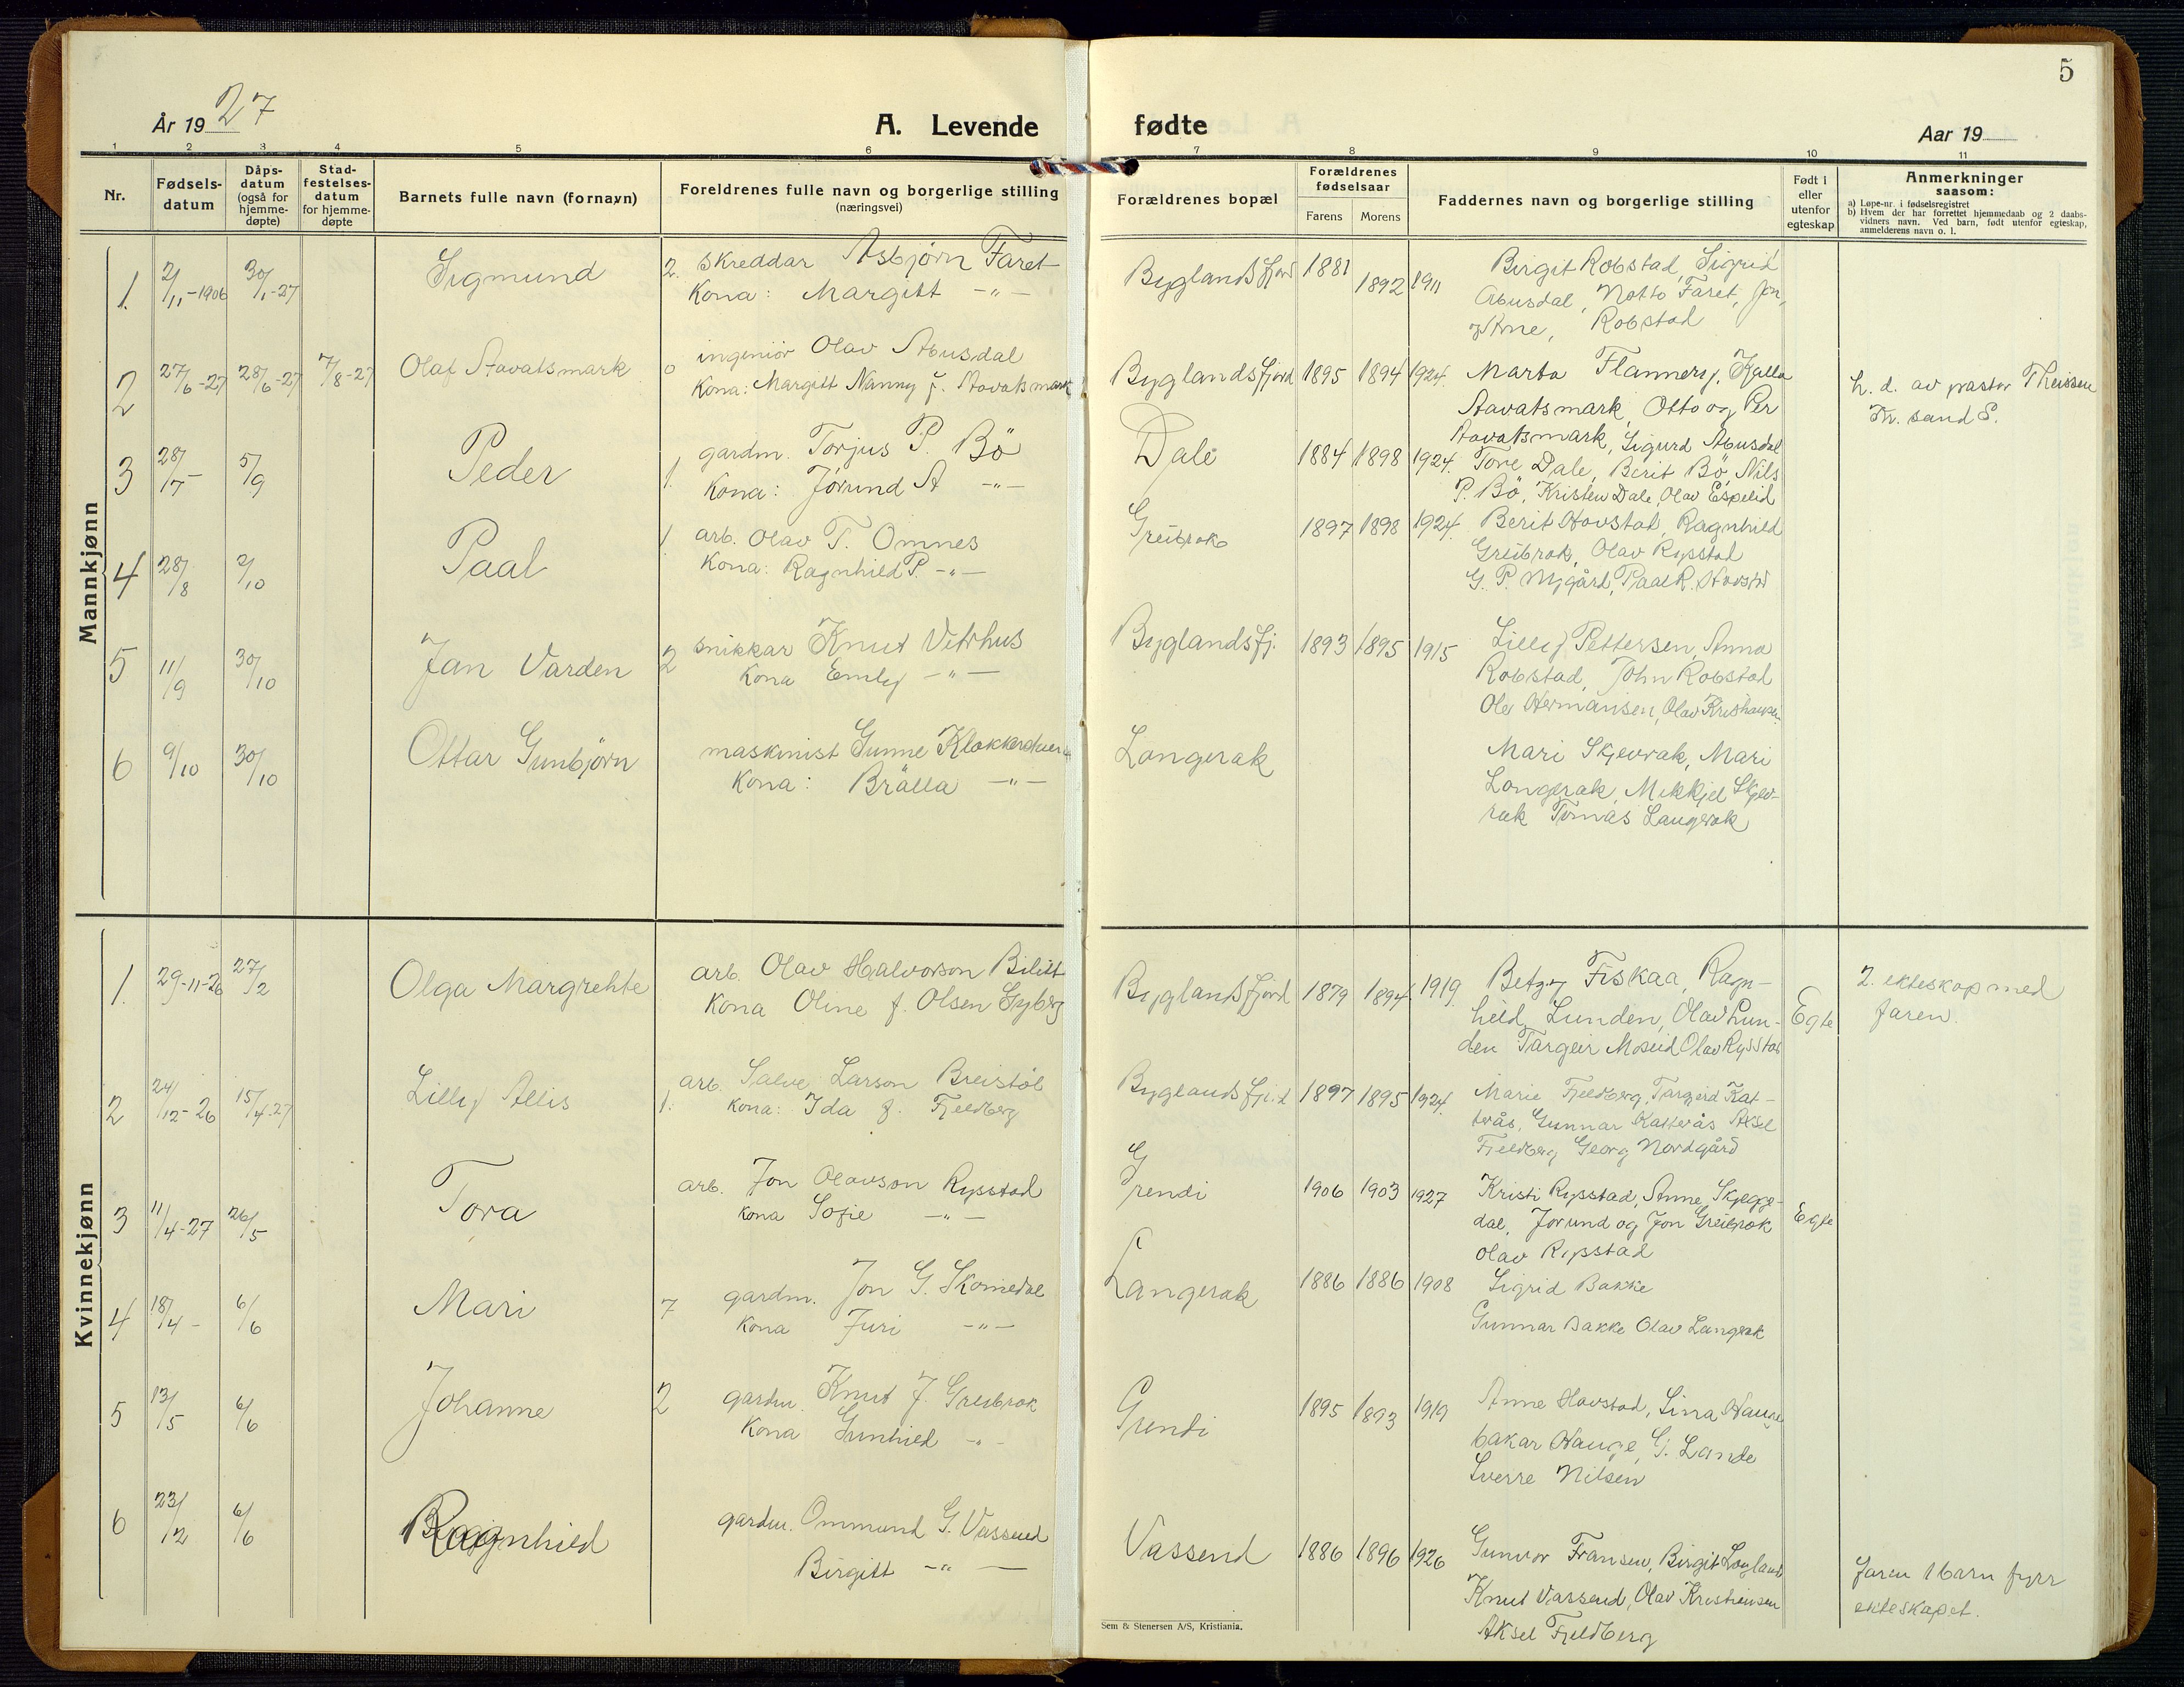 5
År 19 27
A. Levende
fødte
Aar 19
1 2 3 4 5 6 7 8 9 10 11
Nr.
Fødsels-
datum
Dåps-
datum
(også for
hjemme-
døpte)
Stad-
festelses-
datum
for hjemme-
døpte
Barnets fulle navn (fornavn)
Foreldrenes fulle navn og borgerlige stilling
(næringsvei)
Forældrenes bopæl
Forældrenes
fødselsaar
Farens Morens
Faddernes navn og borgerlige stilling
Født i
eller
utenfor
egteskap
Anmerkninger
saasom:
a) Løpe-nr. i fødselsregistret
b) Hvem der har forrettet hjemmedaab og 2 daabs-
vidners navn. Ved barn, født utenfor egteskap,
anmelderens navn o. l.
Mannkjønn
1. 2/11-1906 30/1-27 Sigmund 2. Skreddar Asbjørn Faret
Kona: Margitt -"-
Byglandsfjord 1881 1892 1911 Birgit Robstad, Sigrid
Abusdal, Notto Faret, Jon,
og Arne, Robstad
2 27/6-27 28/6-27 7/8-27 Olaf Stavatsmark 0 ingeniör Olav Abusdal
Kona: Margitt Nanny f. Aavatsmark
Byglandsfjord 1895 1894 1924. Marta Flannery, Kalla
Aavatsmark, Otto og Per
Aavatsmark, Sigurd Abusdal
h. d. av pastor Theissen
Kr. sand S.
3 28/7- 5/9 Peder 1. gardm. Torjus P. Bö
Kona: Jorund A -"-
Dale 1884 1898 1924. Tore Dale, Berit Bö, Nils
P. Bö, Kristen Dale, Olav Espelid
4 28/8 2/10 Paal 1 arb. Olav T. Omnes
Kona: Ragnhild P. -"-
Greibrok 1897 1898 1924. Berit Hovstad, Ragnhild
Greibrok, Olav Rysstad
G. P. Nygård, Paal R. Hovstad
5 11/9 30/10 Jan Varden 2 snikkar Knut Vetrhus
Kona Emly -"-
Byglandsfj. 1893 1895 1915 Lilly Pettersen, Anna
Robstad, John Robstad
Ole Hermansen, Olav
6 9/10 30/10 Ottar Gunbjørn maskinist Gunne
Kona: Brålla -"-
Langerak Mari Skjevrak, Mari
Langerak, Mikkjel Skjev-
rak Tomas Langerak
Kvinnekjønn
1. 29-11-26 27/2 Olga Margrehte arb. Olav Halvorson Bilitt
Kona Oline f. Olsen Gyberg
Byglandsfjord 1879 1894 1919 Betzy Fiskaa, Ragn-
hild Lunden, Olav Lun-
den Targeir Moseid Olav Rysstad
Egte
2. ekteskap med
faren.
2 24/12-26 15/4-27 Lilly Allis 1. arb. Salve Larson Breistöl
Kona: Ida f. Fjeldberg
Byglandsfjord 1897 1895 1924. Marie Fjeldberg, Targjerd Kat-
terås, Gunnar Katterås Aksel
Fjeldberg Georg Nordgård
3 11/4-27 26/5 Tora arb. Jon Olavson Rysstad
kona Sofie -"-
Grendi 1906 1903 1927 Kristi Rysstad, Anne Skjegge-
dal, Jorund og Jon Greibrok
Olav Rysstad
Egte
4 18/4- 6/6 Mari 7 gardm. Jon G. Skomedal
Kona Juri -"-
Langerak 1886 1886 1908 Sigrid Bakke
Gunnar Bakke Olav Langrak
5 13/5 6/6 Johanne 2 gardm. Knut J. Greibrok
Kona Gunhild -"-
Grendi 1895 1893 1919 Anne Hovstad, Lina Hauge
bakar Hauge, G. Lande
Sverre Nilsen
6 23/12 6/6 Ragnhild gardm. Ommund G. Vassend
Birgitt -"-
Vassend 1886 1896 1926 Gunvor Fransen, Birgit Longland
Knut Vassend, Olav Kristiansen
Aksel Fjeldberg
faren 1 barn fyrr
ekteskapet.
Sem & Stenersen A/S, Kristiania.